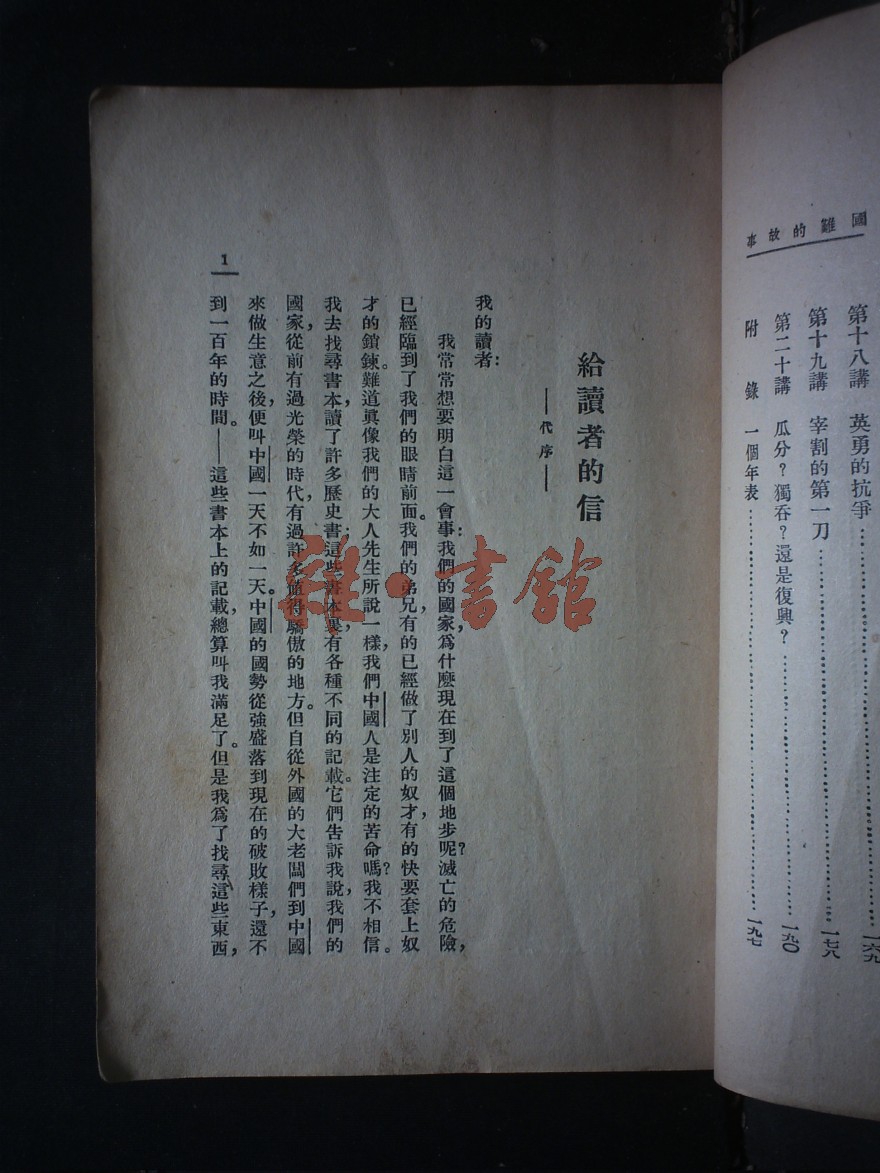 國難的故事
第十八講 英勇的抗爭……一六九
第十九講 宰割的第一刀……一七八
第二十講 瓜分?獨吞?還是復興?……一九〇
附錄 一個年表……一九七
給讀者的信
——代序——
我的讀者:
我常常想要明白這一會事:我們的國家,爲什麽現在到了這個地步呢?滅亡的危險,
已經臨到了我們的眼睛前面。我們的弟兄有的已經做了別人的奴才,有的快要套上奴
才的鎖鍊。難道眞像我們的大人先生所說一樣,我們中國人是注定的苦命嗎?我不相信。
我去找尋書本,讀了許多歷史書;這些書本裏,有各種不同的記載。它們告訴我說,我們的
國家,從前有過光榮的時代,有過許多值得驕傲的地方。但自從外國的大老闆們到中國
來做生意之後,便叫中國一天不如一天。中國的國勢從強盛落到現在的破敗樣子,還不
到一百年的時間。——這些書本上的記載,總算叫我滿足了。但是我爲了找尋這些東西,
1
雜·書館